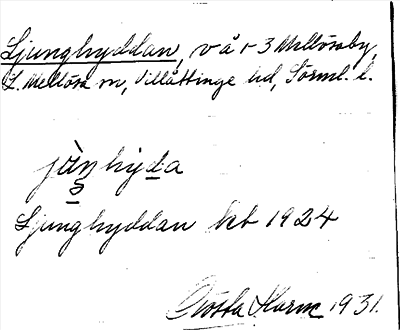 Ljunghyddan, vå r 3 Mellösaby,
L. Mellösa sn, Villåttinge hd, Sörml. l.
Ljunghyddan kb 1924
Gösta Harm 1931.